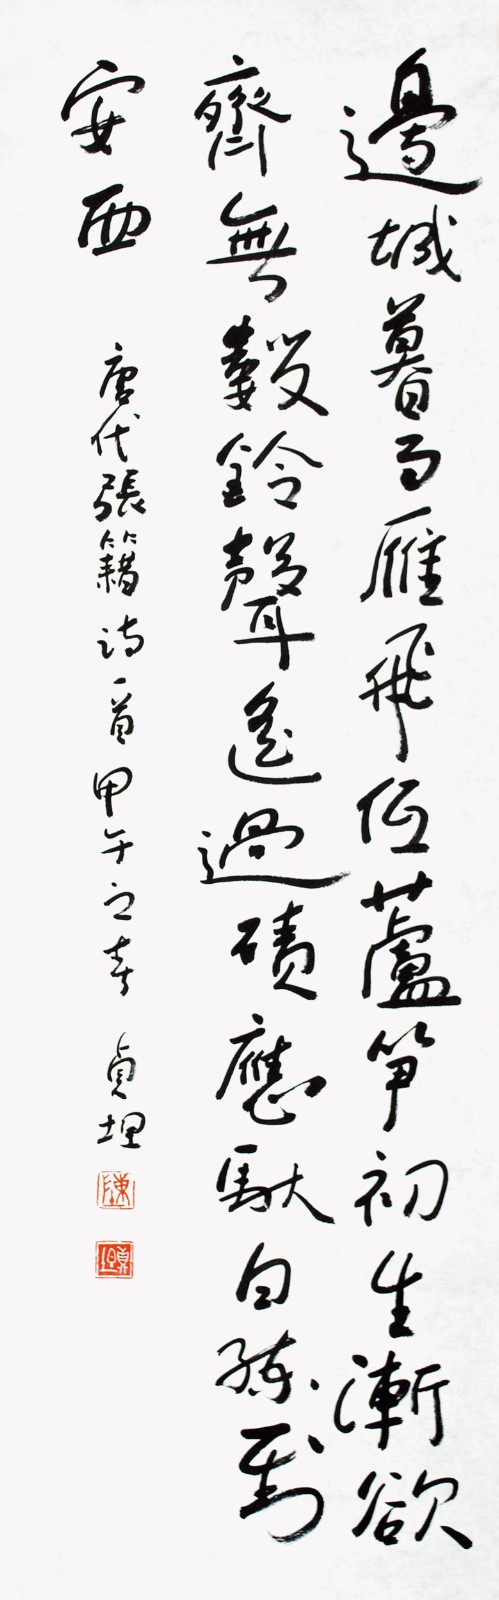 邊城暮雨雁飛低蘆筍初生漸欲
齊無數鈴聲遙過磧應馱白練到
安西
唐代張籍詩一首甲午之春 貞坦
陳
貞坦